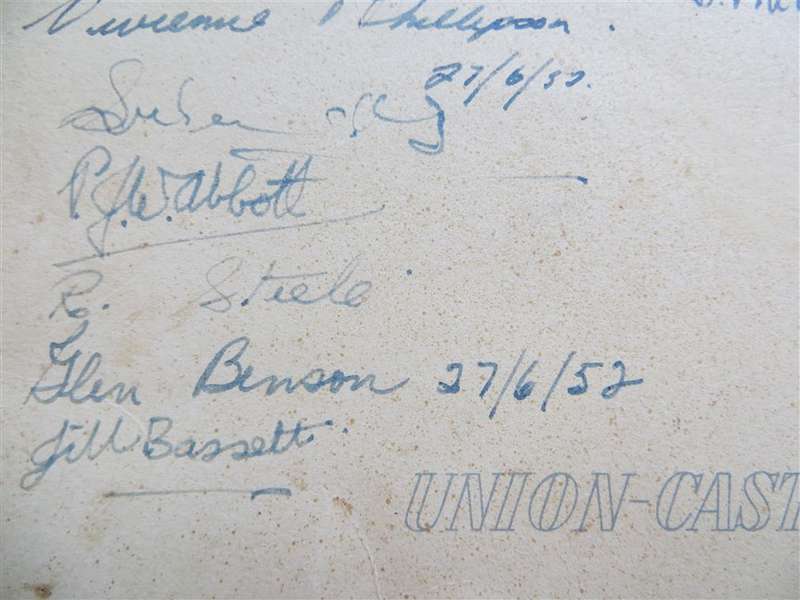 Vivienne Phillipson.
27/6/52.
P.J.W. Abbott
R. Steele
Glen Benson 27/6/52
Jill Bassett.
UNION-CAST